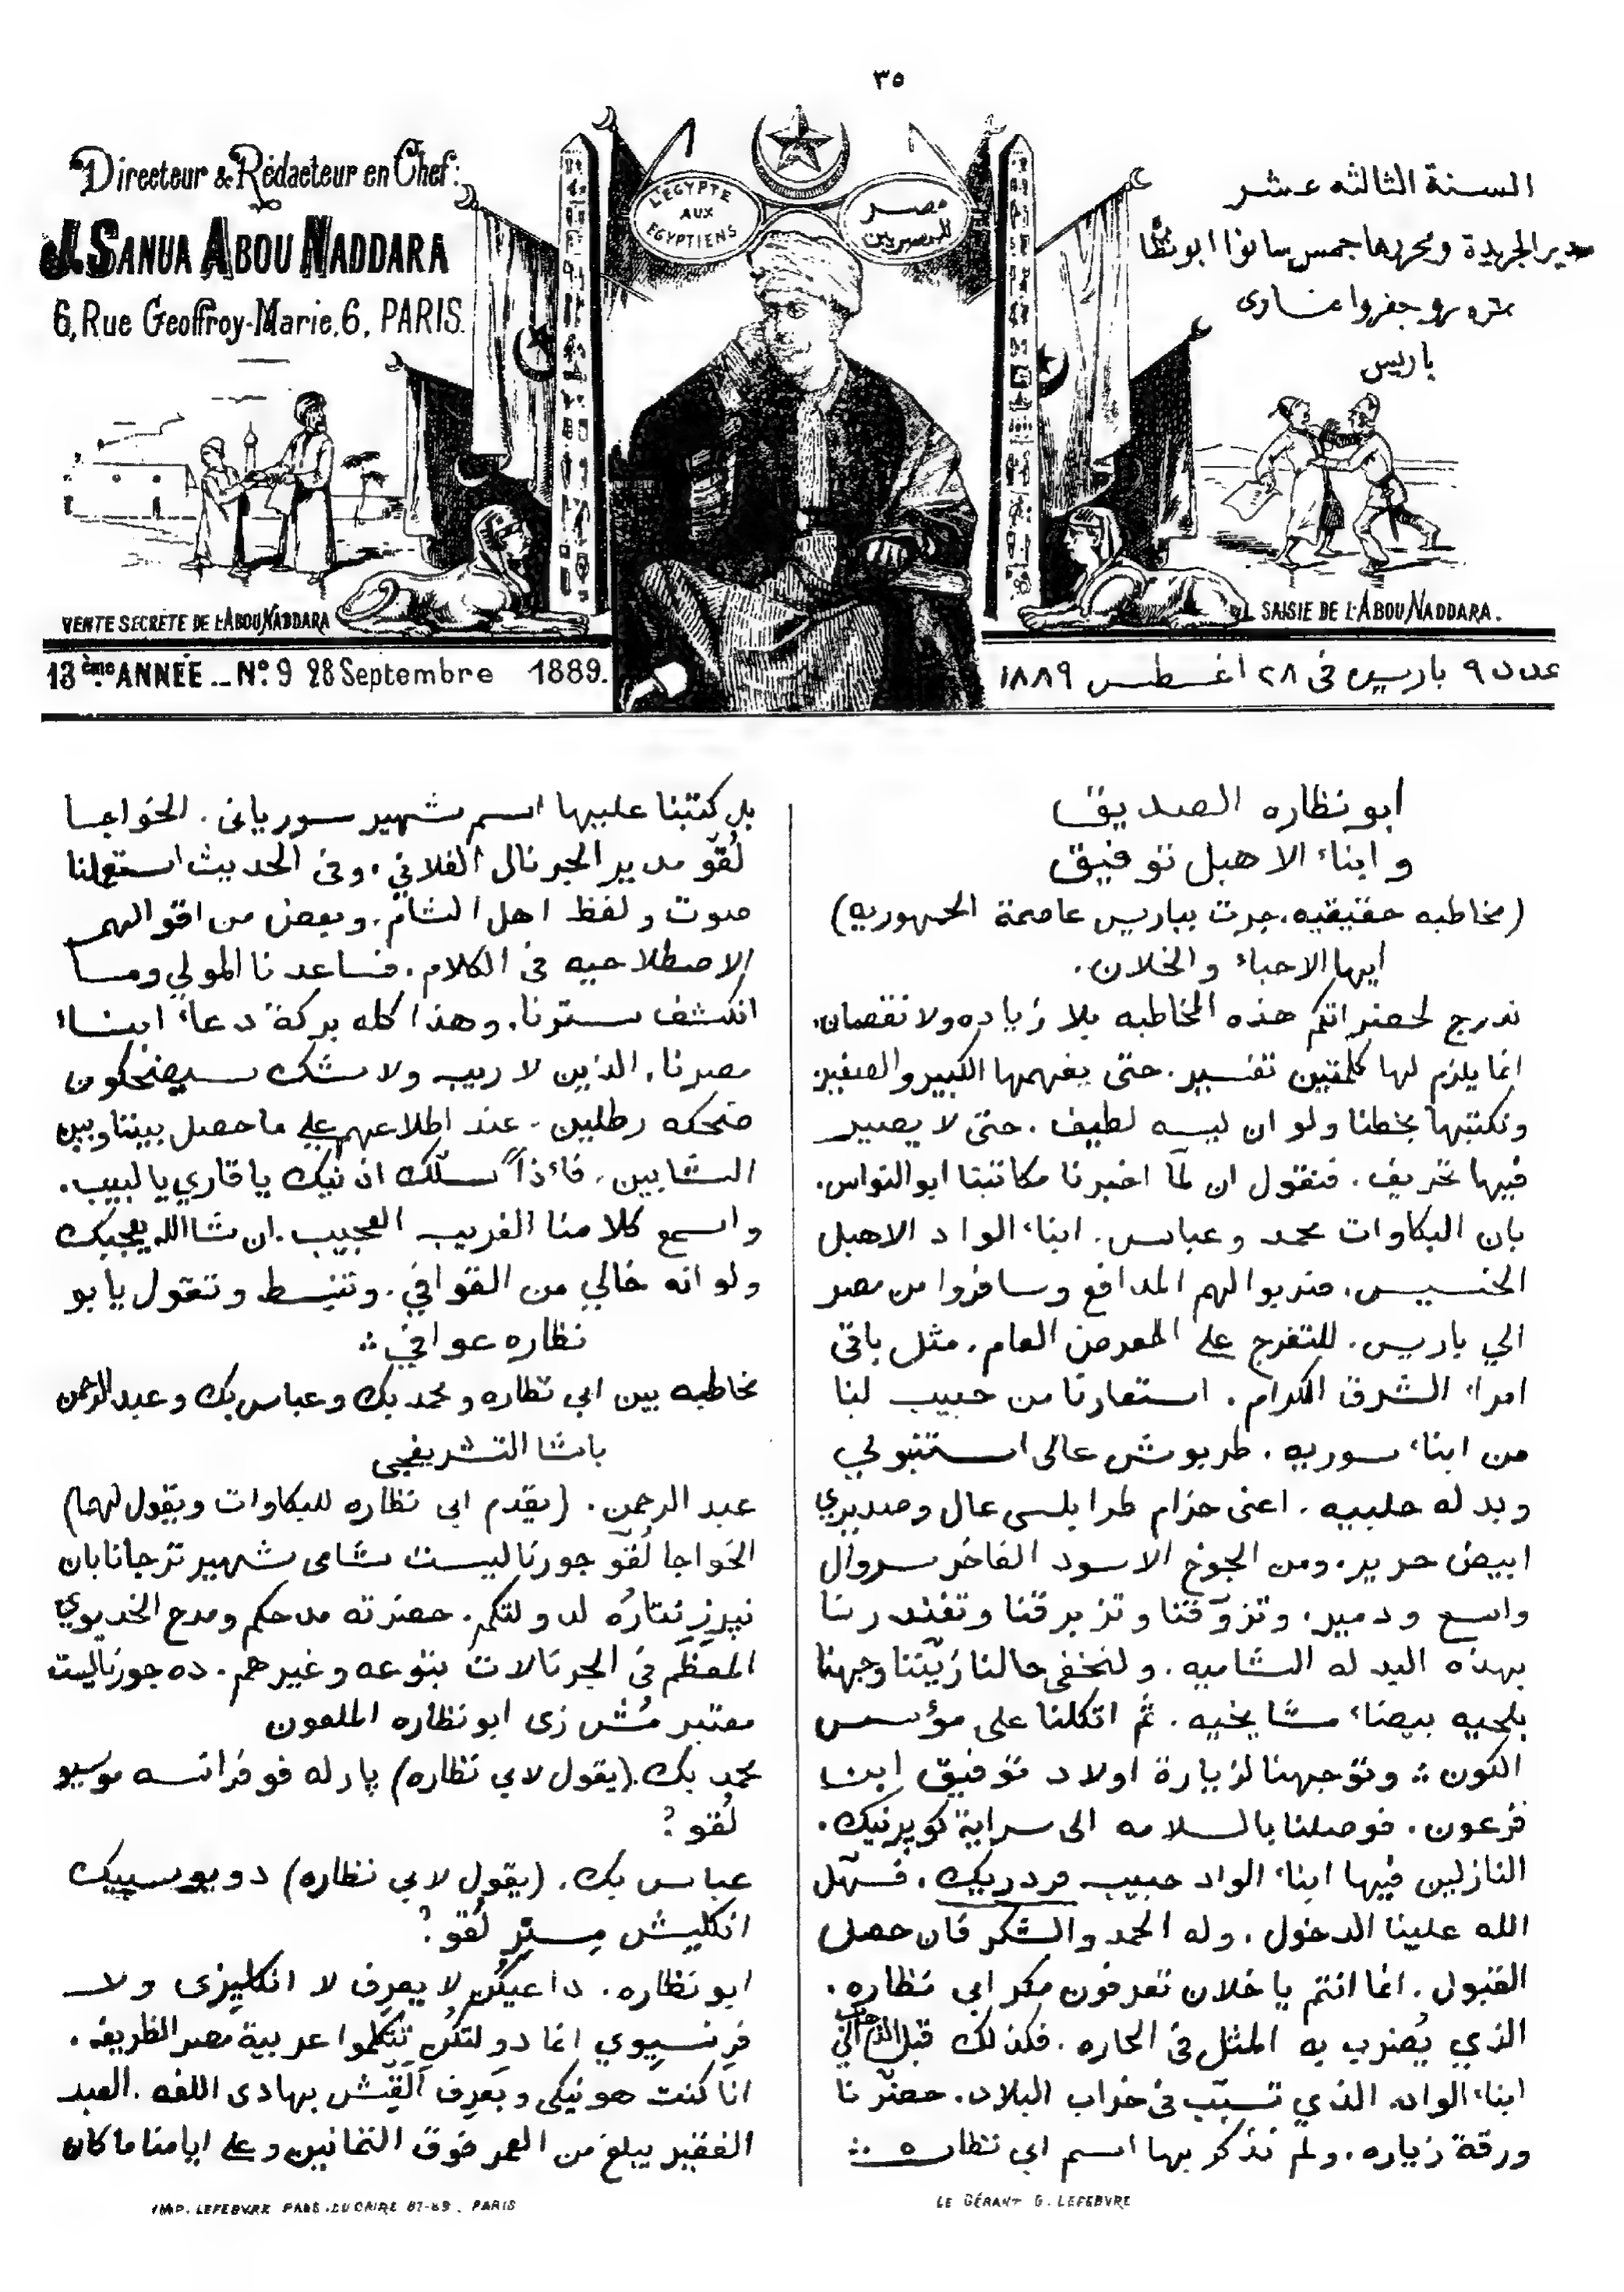 ٣٥
Directeur & Rédacteur en Chef:
J. SANUA ABOU NADDARA
6, Rue Geoffroy-Marie, 6, PARIS.
L'EGYPTE
AUX
EGYPTIENS
مصر
للمصريين
السنة الثالثه عشر
مدير الجريدة ومحررها جمس سانوا ابو نظا
نمره رو جفروا
باريس
VENTE SECRÈTE DE L'ABOU NADDARA
SAISIE DE L'ABOU NADDARA.
13ème ANNÉE _ No. 9 28 Septembre 1889.
عدد ٩ باريس فى ٢٨ اغسطس ١٨٨٩
ابو نظاره الصديق
وابناء الاهبل توفيق
(مخاطبه حقيقيه. جرت بباريس عاصمة الجمهوريه)
أيها الاحباء والخلان.
ندرج لحضراتكم هذه المخاطبه بلا زياده ولا نقصان.
انما يلزم لها كلمتين تفسير. حتى يفهمها الكبير والصغير
ونكتبها بخطنا ولو ان ليسه لطيف. حتى لا يصير
فيها تحريف. فنقول ان لمّا اخبرنا مكاتبنا ابو النواس.
بان البكاوات محمد وعباس. ابناء الواد الاهبل
الخسيس. ضربوا لهم المدافع وسافروا من مصر
الي باريس. للتفرج على المعرض العام. مثل باقى
امراء الشرق الكرام. استعارنا من حبيب لنا
من ابناء سوريه. طربوش عالى استنبولي
وبدله حلبيه. اعنى حزام طرابلسى عال وصديري
ابيض حرير. ومن الجوخ الاسود الفاخر سروال
واسع ودمير. وتزوّقنا وتزبرقنا وتغندرنا
بهذه البدله الشاميه. ولنخفى حالنا زيّنّا وجهنا
بلحيه بيضاء مشايخيه. ثم اتكلنا على مؤسس
الكون ؞ وتوجهنا لزيارة اولاد توفيق ابن
فرعون. فوصلنا بالسلامه الى سراية كوپرنيك.
النازلين فيها ابناء الواد حبيب فردريك. فسهّل
الله علينا الدخول. وله الحمد والشكر فان حصل
القبول. انما انتم يا خلان تعرفون مكر ابي نظاره.
الذي يُضرب به المثل فى الحاره. فكذلك قبل الى
ابناء الواد. الذي تسبّب فى خراب البلاد. حضّرنا
ورقة زياره. ولم نذكر بها اسم ابي نظاره ؞
بل كتبنا عليها اسم شهير سورياني. الخواجا
لُقّو مدير الجرنال الفلاني. وفى الحديث استعملنا
صوت ولفظ اهل الشام. وبعض من اقوالهم
الاصطلاحيه فى الكلام. فساعدنا المولي وما
انكشف سترنا. وهذا كله بركة دعاء ابناء
مصرنا. الذين لا ريب ولا شك سيضحكون
ضحكه رطلين. عند اطلاعهم على ما حصل بيننا وبين
الشابين. فاءذاً سلّك اذنيك يا قاري يا لبيب.
واسمع كلامنا الغريب العجيب. ان شاالله يعجبك
ولو انه خالي من القوافي. وتنبسط وتقول يابو
نظاره عوافي ؞
مخاطبه بين ابي نظاره ومحمد بك وعباس بك وعبد الرحمن
باشا التشريفجى
عبد الرحمن. (يقدم ابى نظاره للبكاوات ويقول لهما)
الخواجا لُقّو جورناليست شامى شهير ترجانا بان
نيرز نتاره لدولتكم. حضرته مدحكم ومدح الخديوي
المعظّم فى الجرنالات بتوعه وغيرهم. ده جورناليست
معتبر مُش زى ابو نظاره الملعون
محمد بك. (يقول لابي نظاره) پارله فو فرانسه موسيو
لُقو ؟
عباس بك. (يقول لابي نظاره) دو يو سپيك
انكليش مِستِر لُقو ؟
ابو نظاره. داعيكُن لا يعرِف لا انكليزى ولا
فرنسيوي انما دولتكُن تتكلموا عربية مصر الظريفه.
انا كنت هونيكى وبعرِف القّيش بهادى اللغه. العبد
الفقير يبلغ من العمر فوق الثمانين وعلى ايامنا ما كان
IMP. LEFEBVRE PASS. DU CAIRE 87-89. PARIS
LE GÉRANT G. LEFEBVRE